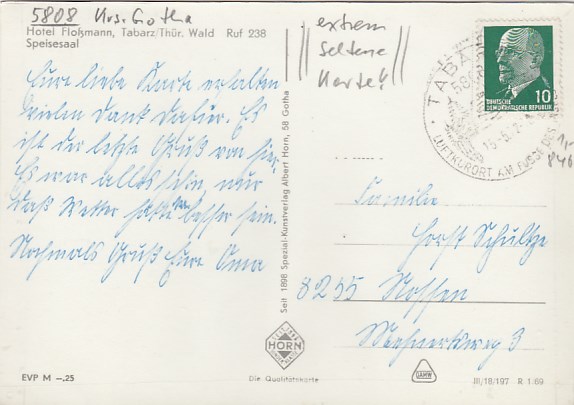 5808 Krs. Gotha
Hotel Floßmann, Tabarz/Thür. Wald Ruf 238
Speisesaal
extrem
seltene
Karte!!
Eure liebe Karte erhalten
vielen Dank dafür. Es
ist der letzte Gruß von hier.
Es war alles schön, nur
das Wetter hätte besser sein.
Nochmals Gruß Eure Oma
Seit 1898 Spezial-Kunstverlag Albert Horn, 58 Gotha
TABARZ
LUFTKURORT AM FUSSE DES
DEUTSCHE
DEMOKRATISCHE REPUBLIK
10
1,-
Familie
Horst Schultze
8255 Nossen
3
HORN
EVP M –,25
Die Qualitätskarte
III/18/197 R 1.69